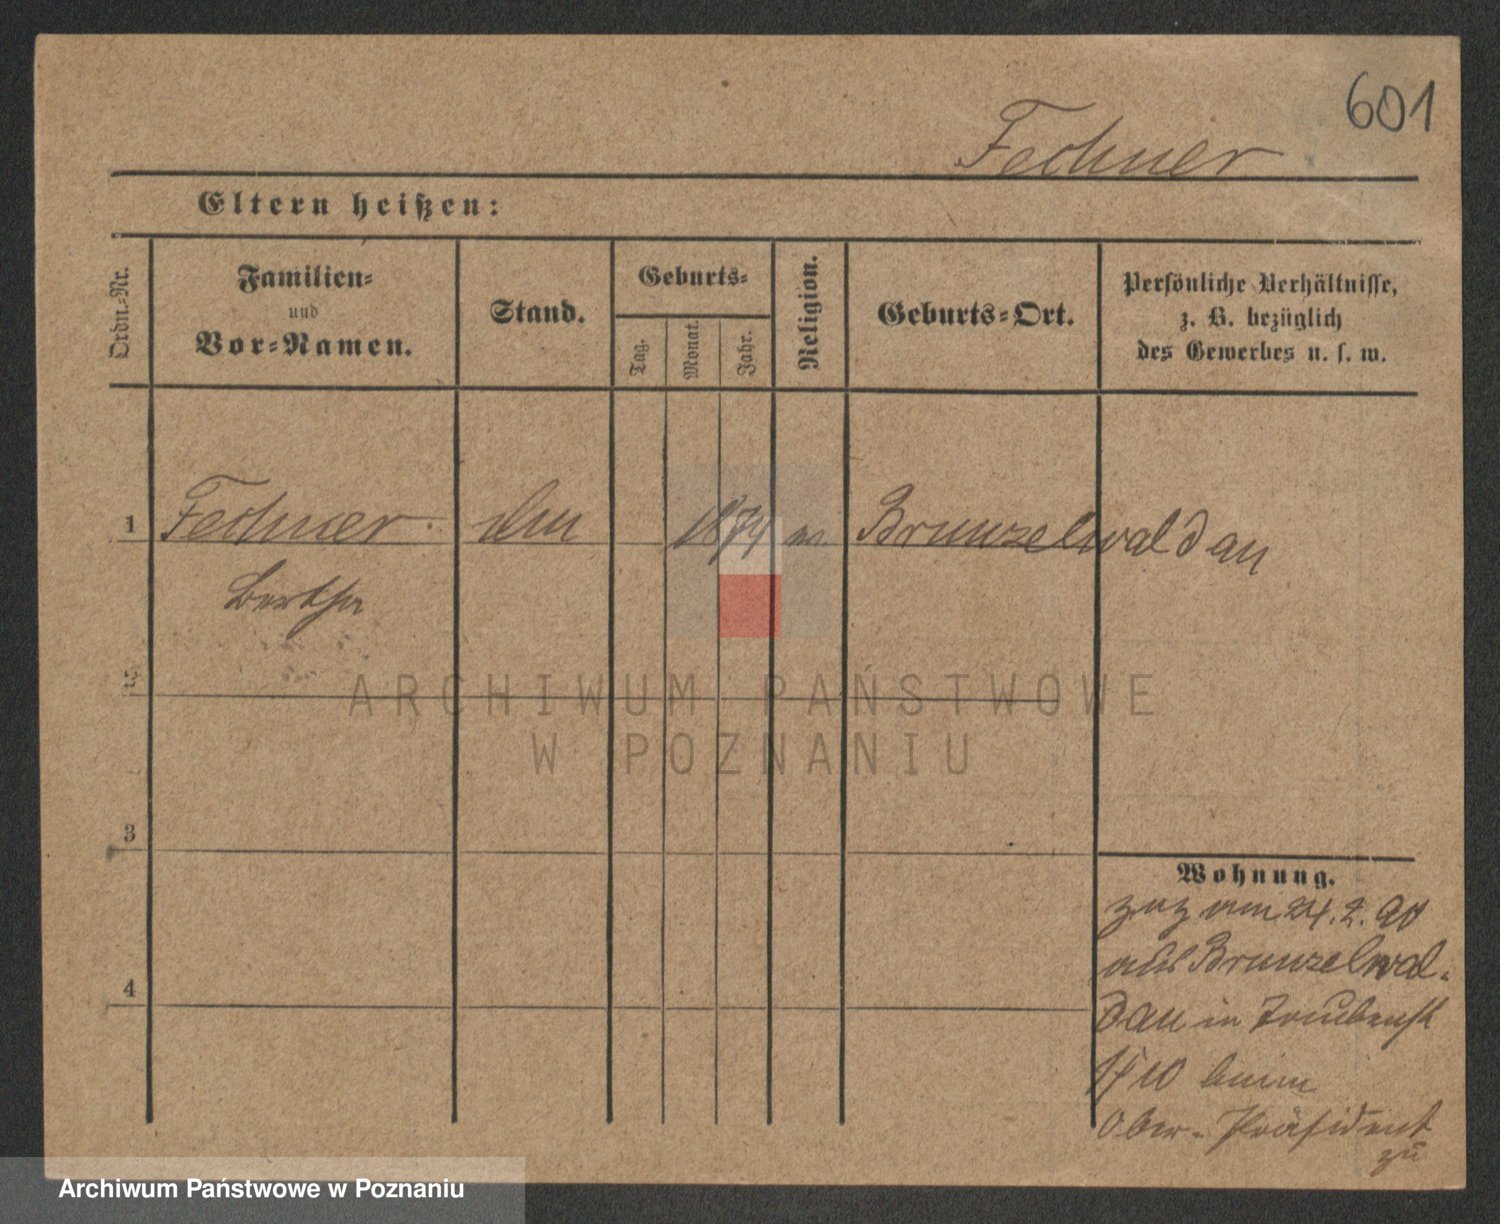 601
Fechner
Eltern heißen:
Ordn.-Nr.
Familien-
und
Vor-Namen.
Stand.
Geburts-
Tag.
Monat.
Jahr.
Religion.
Geburts-Ort.
Persönliche Verhältnisse,
z. B. bezüglich
des Gewerbes u. s. w.
1
Fechner
1874
Brunzelwaldau
Bertha
2
3
4
Wohnung.
zuz am 24. 2. 90
aus Brunzelwal-
dau in
beim
Ober-Präsident
ARCHIWUM PAŃSTWOWE
W POZNANIU
Archiwum Państwowe w Poznaniu